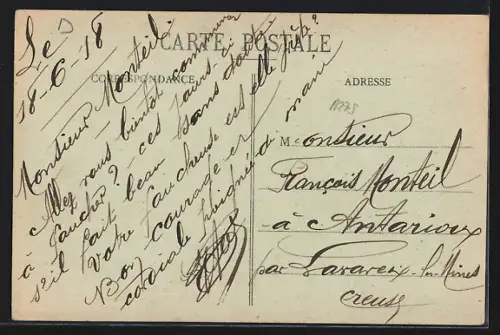 CARTE POSTALE
CORRESPONDANCE
ADRESSE
Le
18-6-18
Monsieur Monteil.
Allez vous bientôt commencer
à faucher? - ces jours-ci
s'il fait beau sans doute
Votre faucheuse est elle prête?
Bon courage et
cordiale poignée de main
11775
Monsieur
François Monteil
à Antarioux
par Lavaveix-les-Mines
Creuse